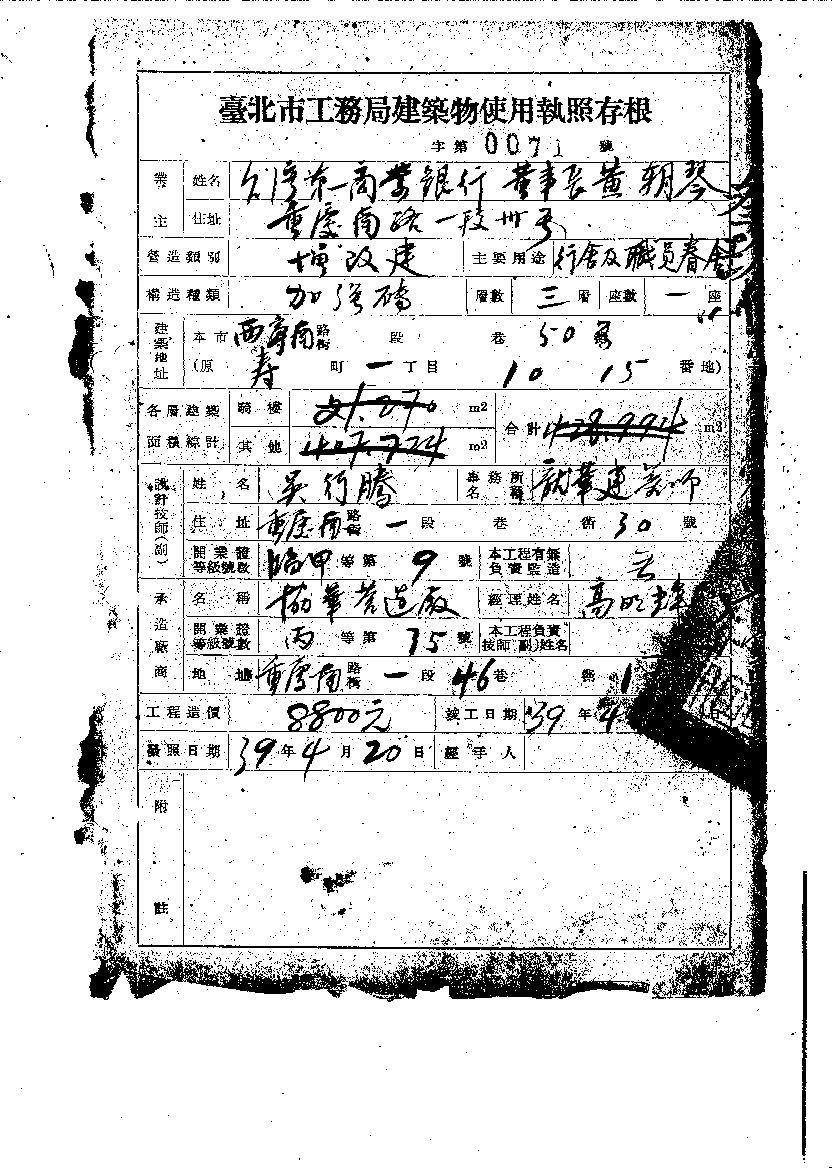 臺北市工務局建築物使用執照存根
字第 0071 號
業主 姓名 台湾第一商業銀行 董事長黃朝琴
住址 重慶南路一段卅号
營造類別 增改建 主要用途 行舍及職員眷舍
構造種類 加強磚 層數 三 層 座數 一 座
建築地址 本市 西寧南 路街 段 巷 50 號
(原 寿 町 一 丁目 10 15 番地)
各層建築面積綜計 騎樓 21.270 m2 合計 428.994 m2
其他 407.724 m2
設計技師(副) 姓名 吳行騰 事務所名稱 建築師
住址 重慶南 路街 一 段 巷 衖 30 號
開業證等級號數 臨甲 等第 9 號 本工程有無負責監造
承造廠商 名稱 協華营造廠 經理姓名 高
開業證等級號數 丙 等第 35 號 本工程負責技師(副)姓名
地址 重慶南 路街 一 段 46 巷 1
工程造價 8800元 竣工日期 39 年 4
發照日期 39 年 4 月 20 日 經手人
附註